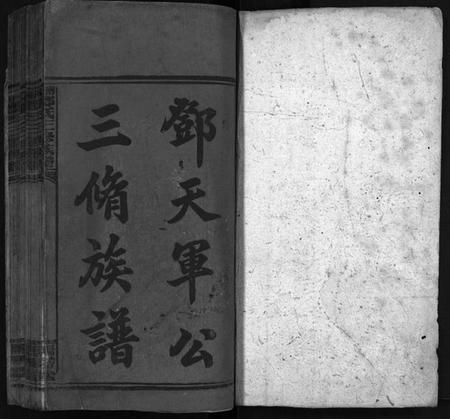 鄧天軍公
三脩族譜